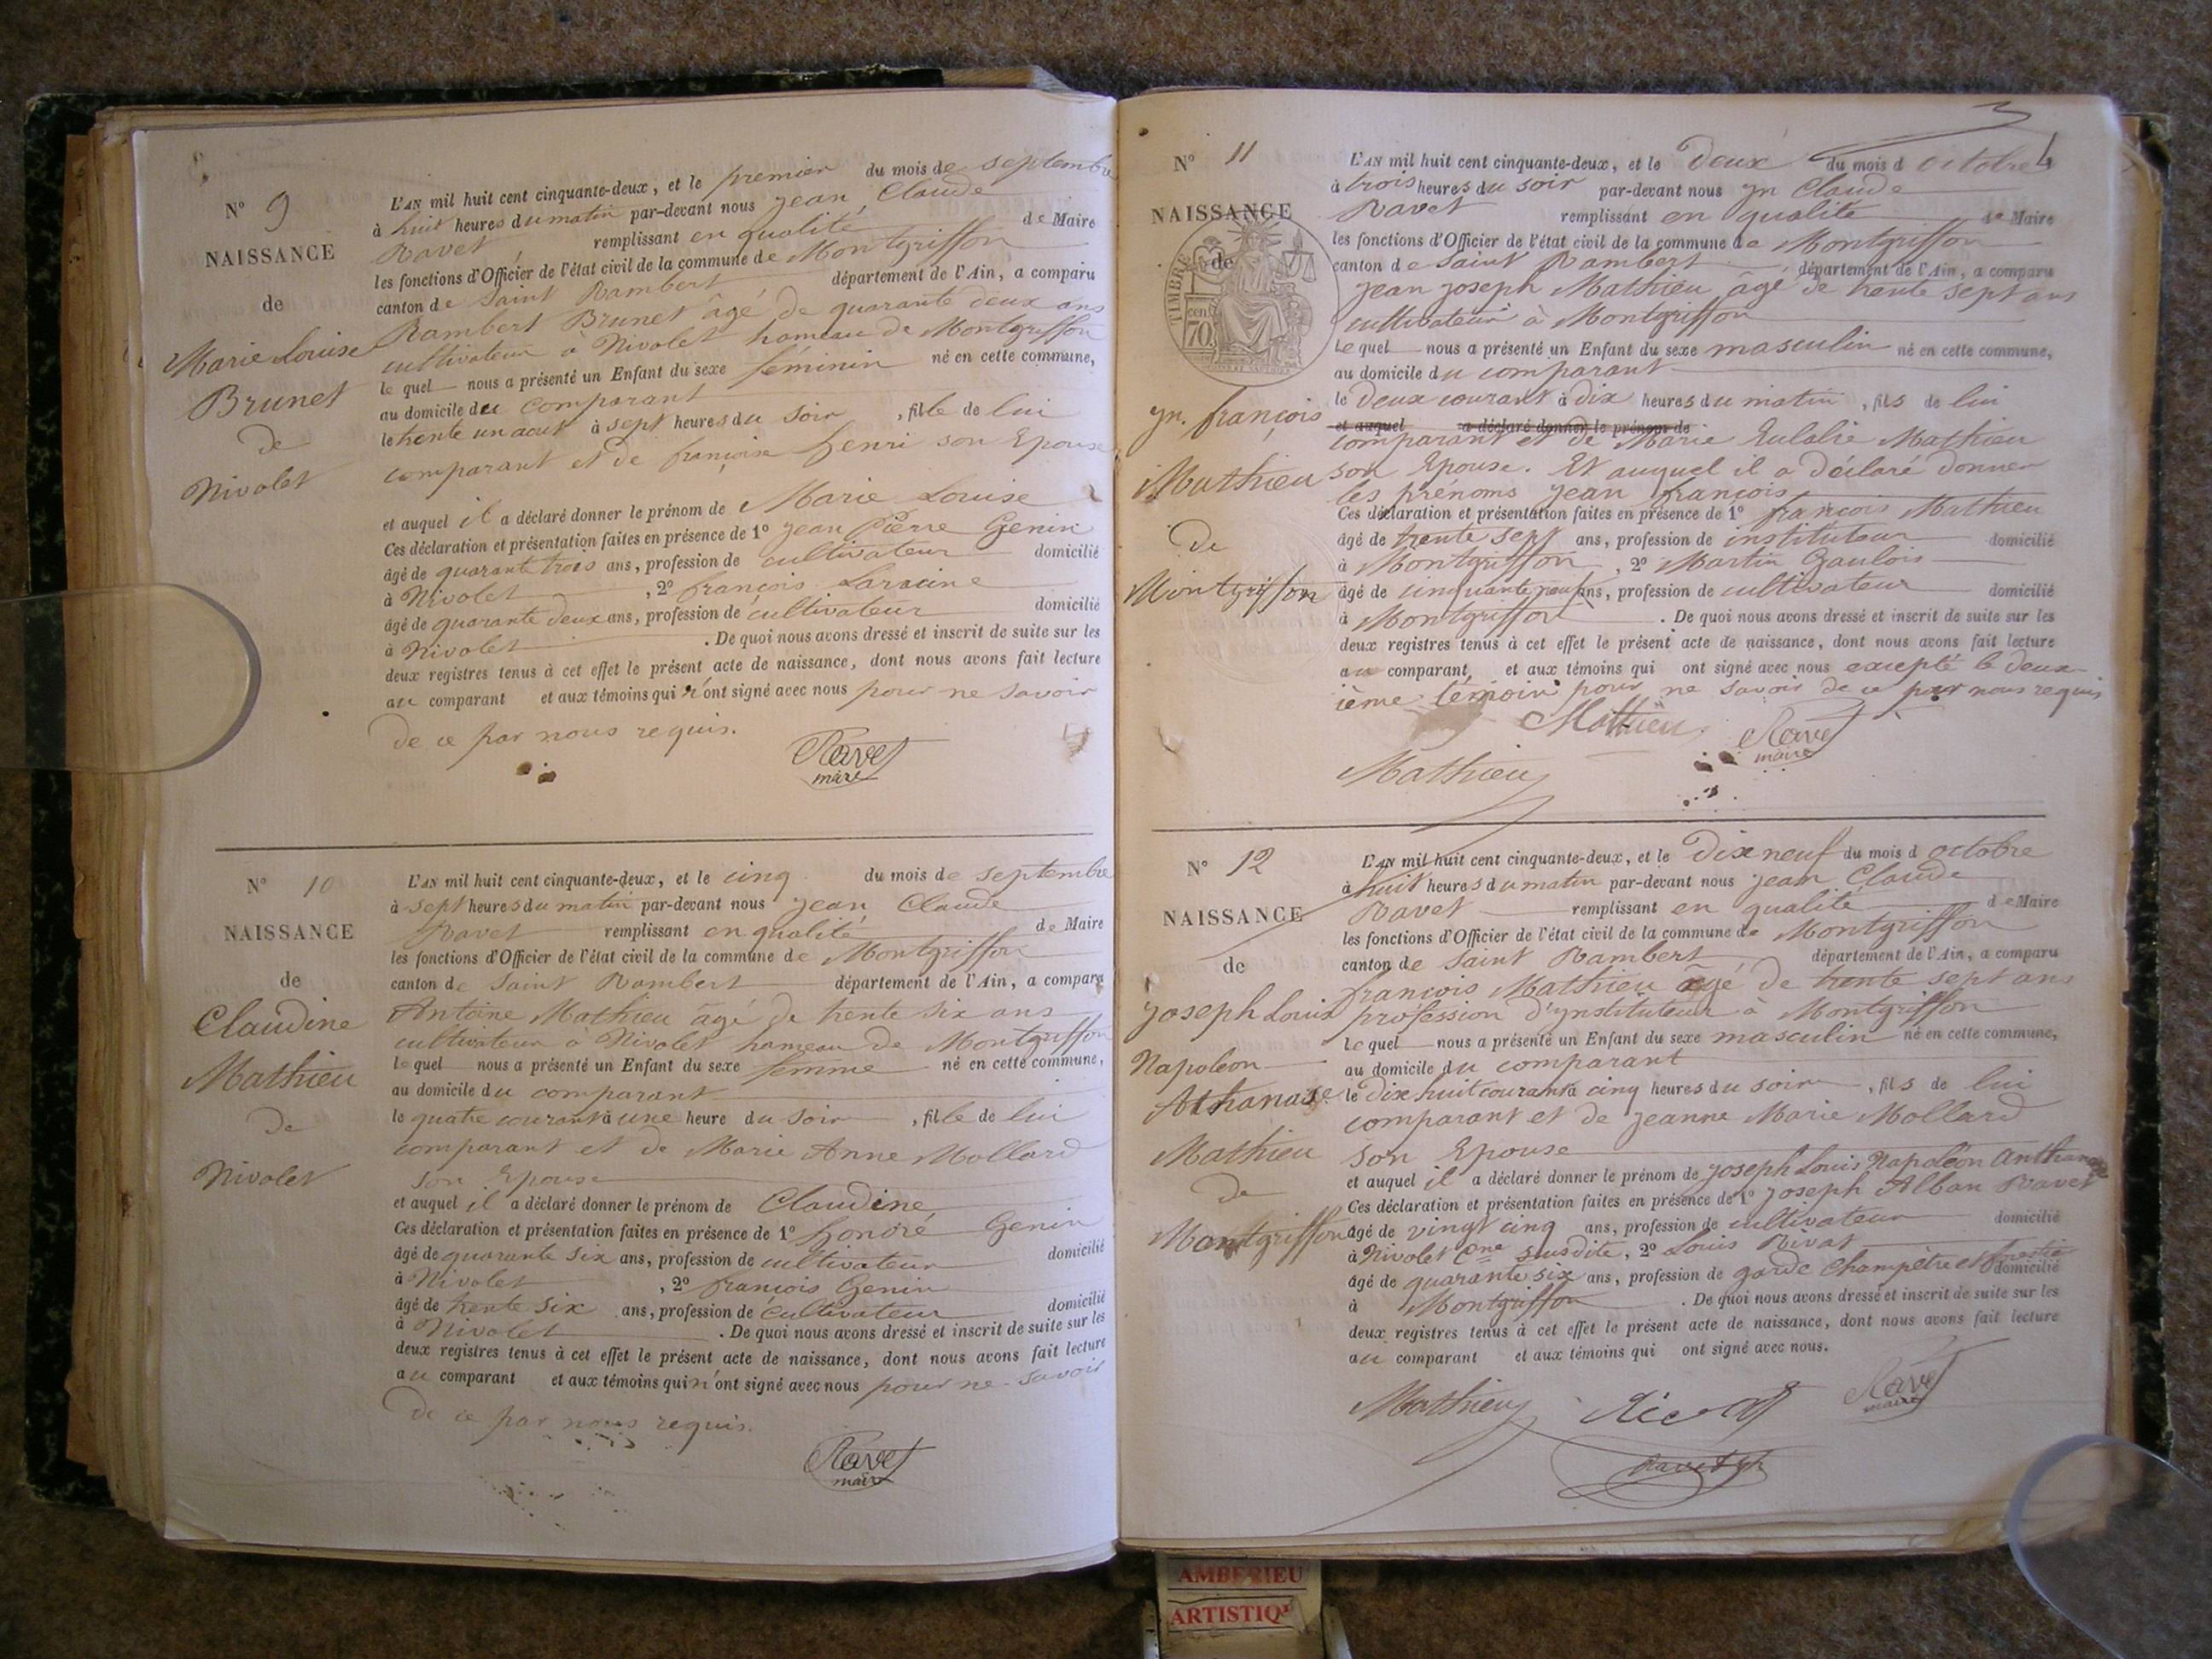 N° 9
NAISSANCE
de
Marie Louise
Brunet
de
Nivolet
L'AN mil huit cent cinquante-deux, et le premier du mois de septembre
à huit heures du matin par-devant nous jean Claude
Ravet remplissant en qualité de Maire
les fonctions d'Officier de l'état civil de la commune de Montgriffon
canton de Saint Rambert département de l'Ain, a comparu
Rambert Brunet âgé de quarante deux ans
cultivateur à Nivolet hameau de Montgriffon
le quel nous a présenté un Enfant du sexe féminin né en cette commune,
au domicile du comparant
le trente un aout à sept heures du soir, fille de lui
comparant et de françoise henri son Epouse
et auquel il a déclaré donner le prénom de Marie Louise
Ces déclaration et présentation faites en présence de 1° jean Pierre Genin
âgé de quarante trois ans, profession de cultivateur domicilié
à Nivolet, 2° françois Laracine
âgé de quarante deux ans, profession de cultivateur domicilié
à Nivolet. De quoi nous avons dressé et inscrit de suite sur les
deux registres tenus à cet effet le présent acte de naissance, dont nous avons fait lecture
au comparant et aux témoins qui n'ont signé avec nous pour ne savoir
de ce par nous requis.
Ravet
maire
N° 10
NAISSANCE
de
Claudine
Mathieu
de
Nivolet
L'AN mil huit cent cinquante-deux, et le cinq du mois de septembre
à sept heures du matin par-devant nous jean Claude
Ravet remplissant en qualité de Maire
les fonctions d'Officier de l'état civil de la commune de Montgriffon
canton de Saint Rambert département de l'Ain, a comparu
Antoine Mathieu âgé de trente six ans
cultivateur à Nivolet hameau de Montgriffon
le quel nous a présenté un Enfant du sexe femme né en cette commune,
au domicile du comparant
le quatre courant à une heure du soir, fille de lui
comparant et de Marie Anne Mollard
son Epouse
et auquel il a déclaré donner le prénom de Claudine
Ces déclaration et présentation faites en présence de 1° honoré Genin
âgé de quarante six ans, profession de cultivateur domicilié
à Nivolet, 2° françois Genin
âgé de trente six ans, profession de cultivateur domicilié
à Nivolet. De quoi nous avons dressé et inscrit de suite sur les
deux registres tenus à cet effet le présent acte de naissance, dont nous avons fait lecture
au comparant et aux témoins qui n'ont signé avec nous pour ne savoir
de ce par nous requis.
Ravet
maire
N° 11
NAISSANCE
de
TIMBRE
70 cen.
jn. françois
Mathieu
de
Montgriffon
L'AN mil huit cent cinquante-deux, et le deux du mois d octobre
à trois heures du soir par-devant nous jn Claude
Ravet remplissant en qualité de Maire
les fonctions d'Officier de l'état civil de la commune de Montgriffon
canton de Saint Rambert département de l'Ain, a comparu
jean joseph Mathieu âgé de trente sept ans
cultivateur à Montgriffon
le quel nous a présenté un Enfant du sexe masculin né en cette commune,
au domicile du comparant
le deux courant à dix heures du matin, fils de lui
et auquel a déclaré donner le prénom de
comparant et de Marie Eulalie Mathieu
son Epouse. Et auquel il a déclaré donner
les prénoms jean françois
Ces déclaration et présentation faites en présence de 1° françois Mathieu
âgé de trente sept ans, profession de instituteur domicilié
à Montgriffon, 2° Martin Gaulois
âgé de cinquante neuf ans, profession de cultivateur domicilié
à Montgriffon. De quoi nous avons dressé et inscrit de suite sur les
deux registres tenus à cet effet le présent acte de naissance, dont nous avons fait lecture
au comparant et aux témoins qui ont signé avec nous excepté le deux-
ième témoin pour ne savoir de ce par nous requis
Mathieu Ravet
maire
Mathieu
N° 12
NAISSANCE
de
joseph Louis
Napoléon
Athanase
Mathieu
de
Montgriffon
L'AN mil huit cent cinquante-deux, et le dix neuf du mois d octobre
à huit heures du matin par-devant nous jean Claude
Ravet remplissant en qualité de Maire
les fonctions d'Officier de l'état civil de la commune de Montgriffon
canton de Saint Rambert département de l'Ain, a comparu
françois Mathieu âgé de trente sept ans
profession d'ynstituteur à Montgriffon
le quel nous a présenté un Enfant du sexe masculin né en cette commune,
au domicile du comparant
le dix huit courant à cinq heures du soir, fils de lui
comparant et de jeanne Marie Mollard
son Epouse
et auquel il a déclaré donner le prénom de joseph Louis Napoléon Anthanase
Ces déclaration et présentation faites en présence de 1° joseph Alban Ravet
âgé de vingt cinq ans, profession de cultivateur domicilié
à Nivolet Cne susdite, 2° Louis Rivat
âgé de quarante six ans, profession de garde champêtre et forestier domicilié
à Montgriffon. De quoi nous avons dressé et inscrit de suite sur les
deux registres tenus à cet effet le présent acte de naissance, dont nous avons fait lecture
au comparant et aux témoins qui ont signé avec nous.
Mathieu Ravet
maire
AMBERIEU
ARTISTIQ